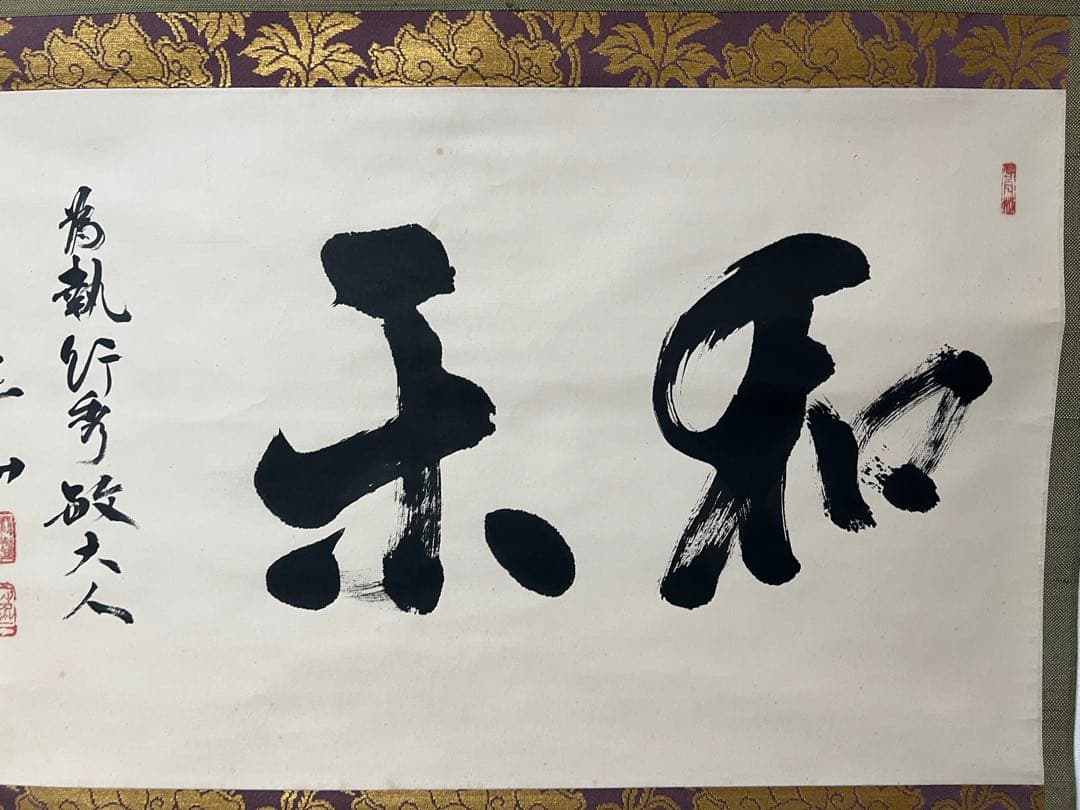 和楽
為執行秀敏大人